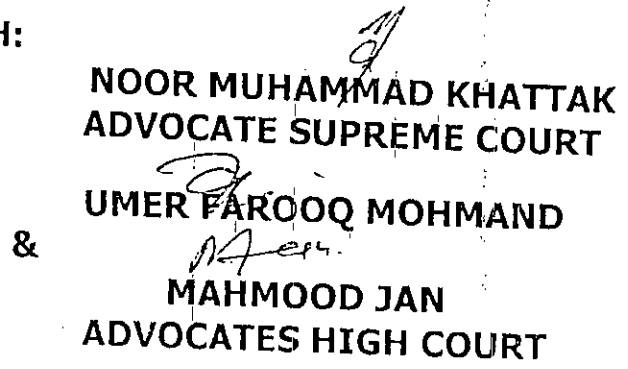 H:
NOOR MUHAMMAD KHATTAK
ADVOCATE SUPREME COURT
UMER FAROOQ MOHMAND
&
MAHMOOD JAN
ADVOCATES HIGH COURT